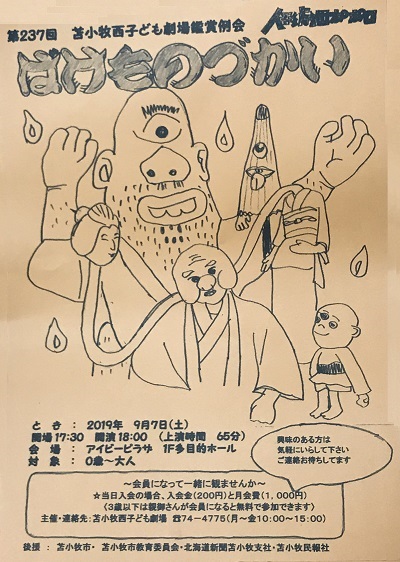 第237回 苫小牧西子ども劇場鑑賞例会
ばけものづかい
とき : 2019年 9月7日(土)
開場17:30 開演18:00 (上演時間 65分)
会場 : アイビープラザ 1F多目的ホール
対象 : 0歳~大人
興味のある方は
気軽にいらして下さい
ご連絡お待ちしてます
~会員になって一緒に観ませんか~
☆当日入会の場合、入会金(200円)と月会費(1,000円)
(3歳以下は親御さんが会員になると無料で参加できます)
主催・連絡先:苫小牧西子ども劇場 ☎74-4775(月~金10:00~15:00)
後援 : 苫小牧市・ 苫小牧市教育委員会・北海道新聞苫小牧支社・苫小牧民報社